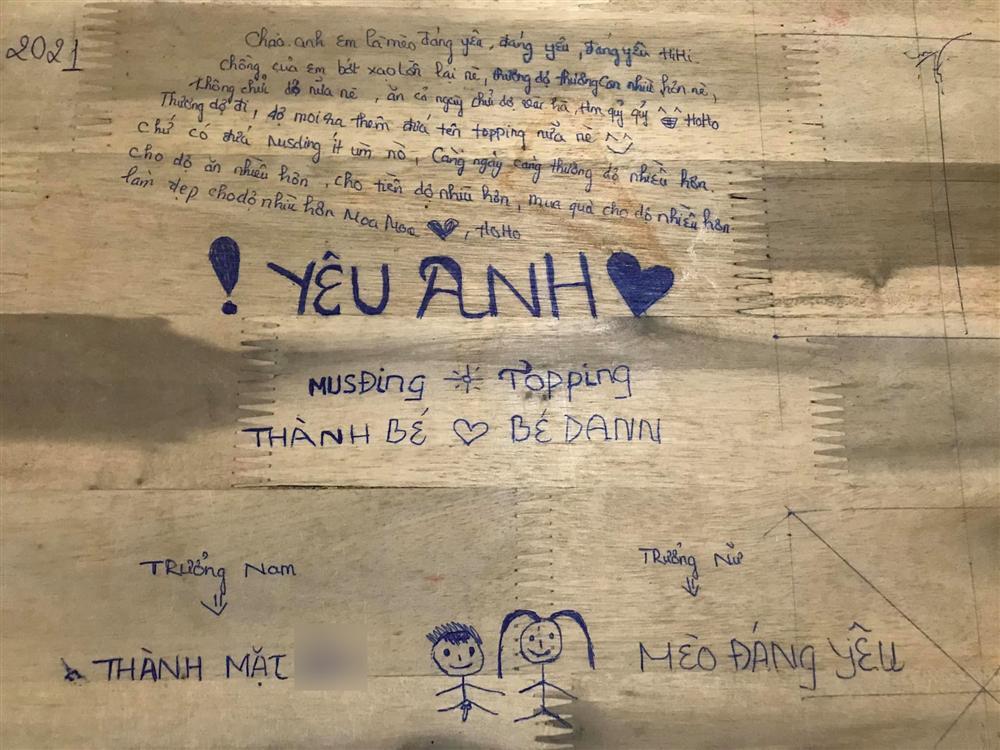 2021
Chào anh em là mèo đáng yêu, đáng yêu, đáng yêu HiHi.
chồng của em bớt xạo lồn lại nè, thương dô thương con nhiều hơn nè,
không chửi dô nữa nè, ăn cả ngày chử dô hà, Hm quỷ quỷ HoHo
Thương dô đi, dô moi ra thêm đứa tên topping nữa nè
chứ có đứa Musding ít ùm nò, Càng ngày càng thương dô nhiều hơn.
cho dô ăn nhiều hơn, cho tiền dô nhiều hơn, mua quà cho dô nhiều hơn
làm đẹp cho dô nhiều hơn Moa Moa, HoHo
! YÊU ANH
MUSĐing Topping
THÀNH BÉ BÉ DANN
TRưởng Nam TRưởng Nữ
THÀNH MẶT MÈO ĐÁNG YÊU